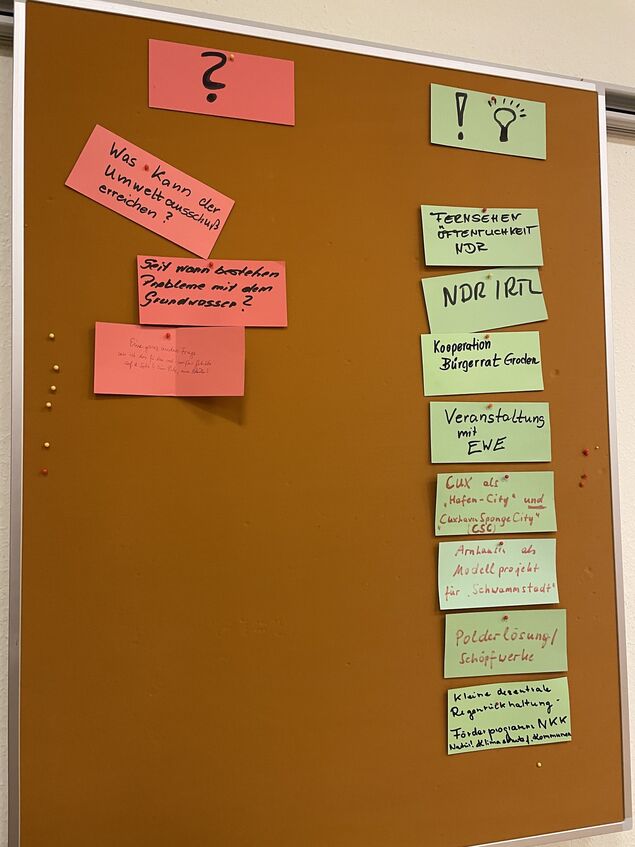 ?
Was kann der
Umweltausschuß
erreichen?
Seit wann bestehen
Probleme mit dem
Grundwasser?
! 
FERNSEHEN
ÖFFENTLICHKEIT
NDR
NDR / RTL
Kooperation
Bürgerrat Groden
Veranstaltung
mit
EWE
CUX als
"Hafen-City" und
"Cuxhavn Sponge City"
(CSC)
als
Modellprojekt
für "Schwammstadt"
Polderlösung/
Schöpfwerke
Kleine dezentrale
Regenrückhaltung -
Förderprogramm NKK
Natürl. Klimaschutz f. Kommunen